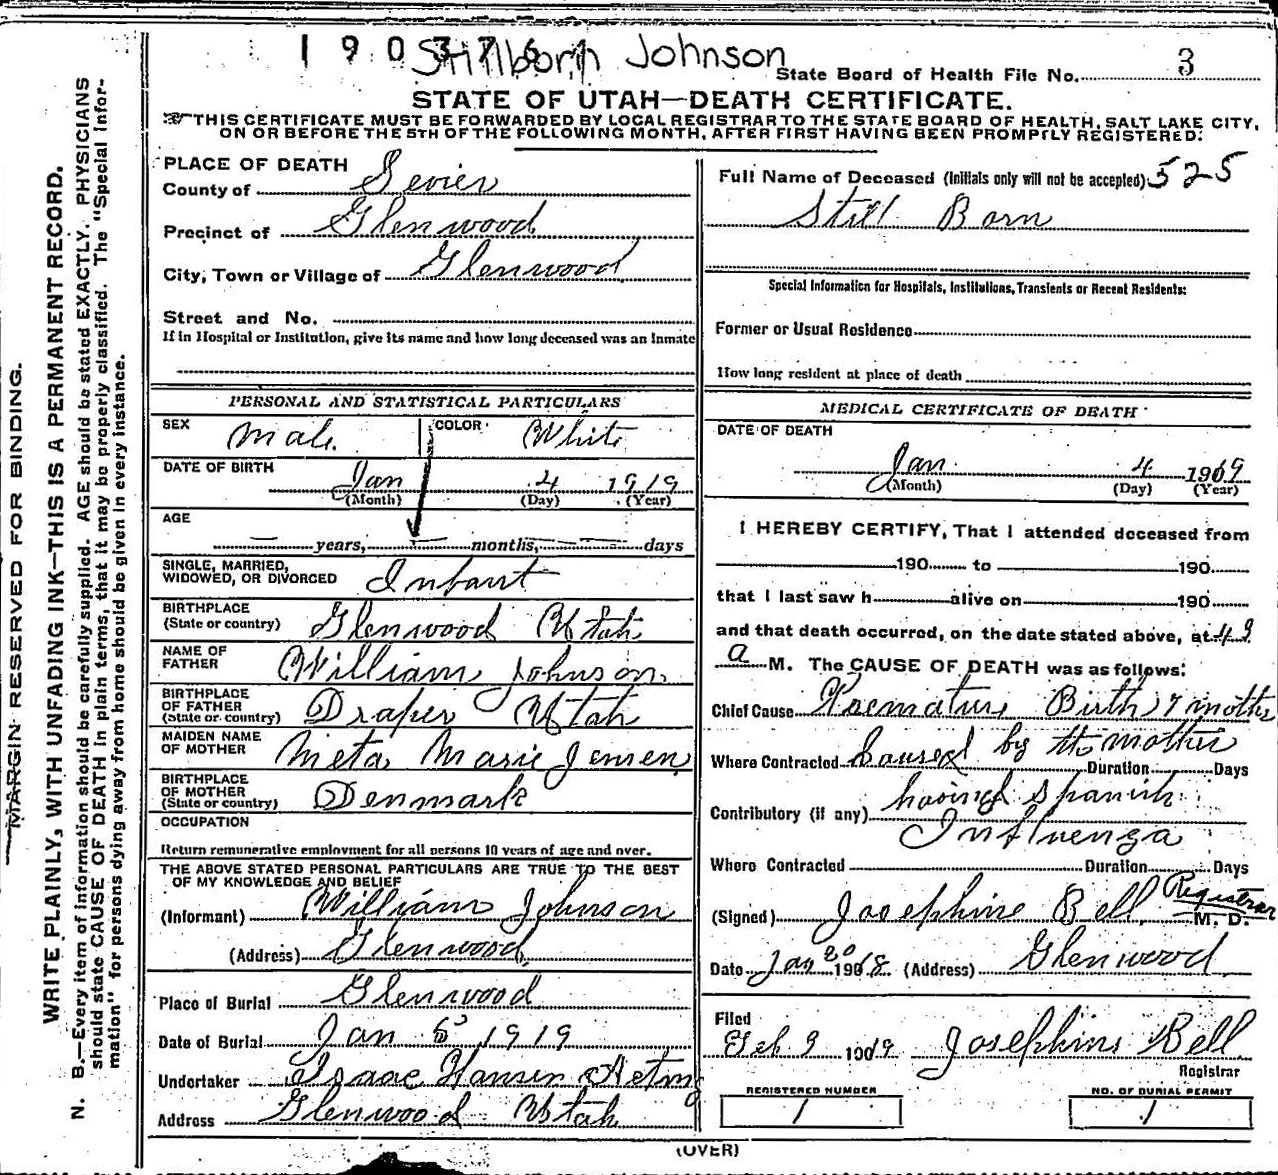 1903761
Stillborn Johnson
State Board of Health File No. 3
STATE OF UTAH—DEATH CERTIFICATE.
THIS CERTIFICATE MUST BE FORWARDED BY LOCAL REGISTRAR TO THE STATE BOARD OF HEALTH, SALT LAKE CITY,
ON OR BEFORE THE 5TH OF THE FOLLOWING MONTH, AFTER FIRST HAVING BEEN PROMPTLY REGISTERED.
MARGIN RESERVED FOR BINDING.
WRITE PLAINLY, WITH UNFADING INK—THIS IS A PERMANENT RECORD.
N. B.—Every item of information should be carefully supplied. AGE should be stated EXACTLY. PHYSICIANS
should state CAUSE OF DEATH in plain terms, that it may be properly classified. The "Special Infor-
mation" for persons dying away from home should be given in every instance.
PLACE OF DEATH
County of Sevier
Precinct of Glenwood
City, Town or Village of Glenwood
Street and No.
If in Hospital or Institution, give its name and how long deceased was an Inmate
PERSONAL AND STATISTICAL PARTICULARS
SEX Male COLOR White
DATE OF BIRTH
Jan 4 1919
(Month) (Day) (Year)
AGE
— years, — months, — days
SINGLE, MARRIED,
WIDOWED, OR DIVORCED Infant
BIRTHPLACE
(State or country) Glenwood Utah
NAME OF
FATHER William Johnson
BIRTHPLACE
OF FATHER
(State or country) Draper Utah
MAIDEN NAME
OF MOTHER Meta Marie Jensen
BIRTHPLACE
OF MOTHER
(State or country) Denmark
OCCUPATION
Return remunerative employment for all persons 10 years of age and over.
THE ABOVE STATED PERSONAL PARTICULARS ARE TRUE TO THE BEST
OF MY KNOWLEDGE AND BELIEF
(Informant) William Johnson
(Address) Glenwood
Place of Burial Glenwood
Date of Burial Jan 5 1919
Undertaker Isaac Hansen Acting
Address Glenwood Utah
Full Name of Deceased (Initials only will not be accepted) 525
Still Born
Special Information for Hospitals, Institutions, Transients or Recent Residents:
Former or Usual Residence
How long resident at place of death
MEDICAL CERTIFICATE OF DEATH
DATE OF DEATH
Jan 4 1919
(Month) (Day) (Year)
I HEREBY CERTIFY, That I attended deceased from
190 to 190
that I last saw h alive on 190
and that death occurred, on the date stated above, at 4
a M. The CAUSE OF DEATH was as follows:
Chief Cause Premature Birth
Where Contracted Caused by the mother Duration Days
Contributory (if any) having Spanish
Influenza
Where Contracted Duration Days
(Signed) Josephine Bell Registrar M. D.
Date Jan 20 1918 (Address) Glenwood
Filed
Feb 9 1919 Josephine Bell
Registrar
REGISTERED NUMBER
1
NO. OF BURIAL PERMIT
1
(OVER)